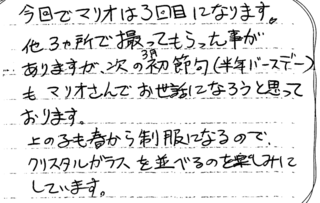 今回でマリオは3回目になります。
他3ヵ所で撮ってもらった事が
ありますが、次の3月初節句(半年バースデー)
も マリオさんでお世話になろうと思って
おります。
上の子も春から制服になるので、
クリスタルガラスを並べるのを楽しみに
しています。